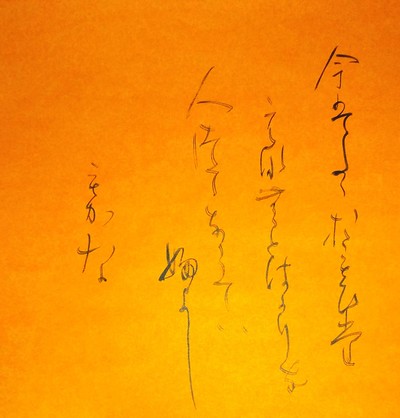 今はたゝおもひ堂
えなむとはかりを
人つてならてい
婦よし
もかな